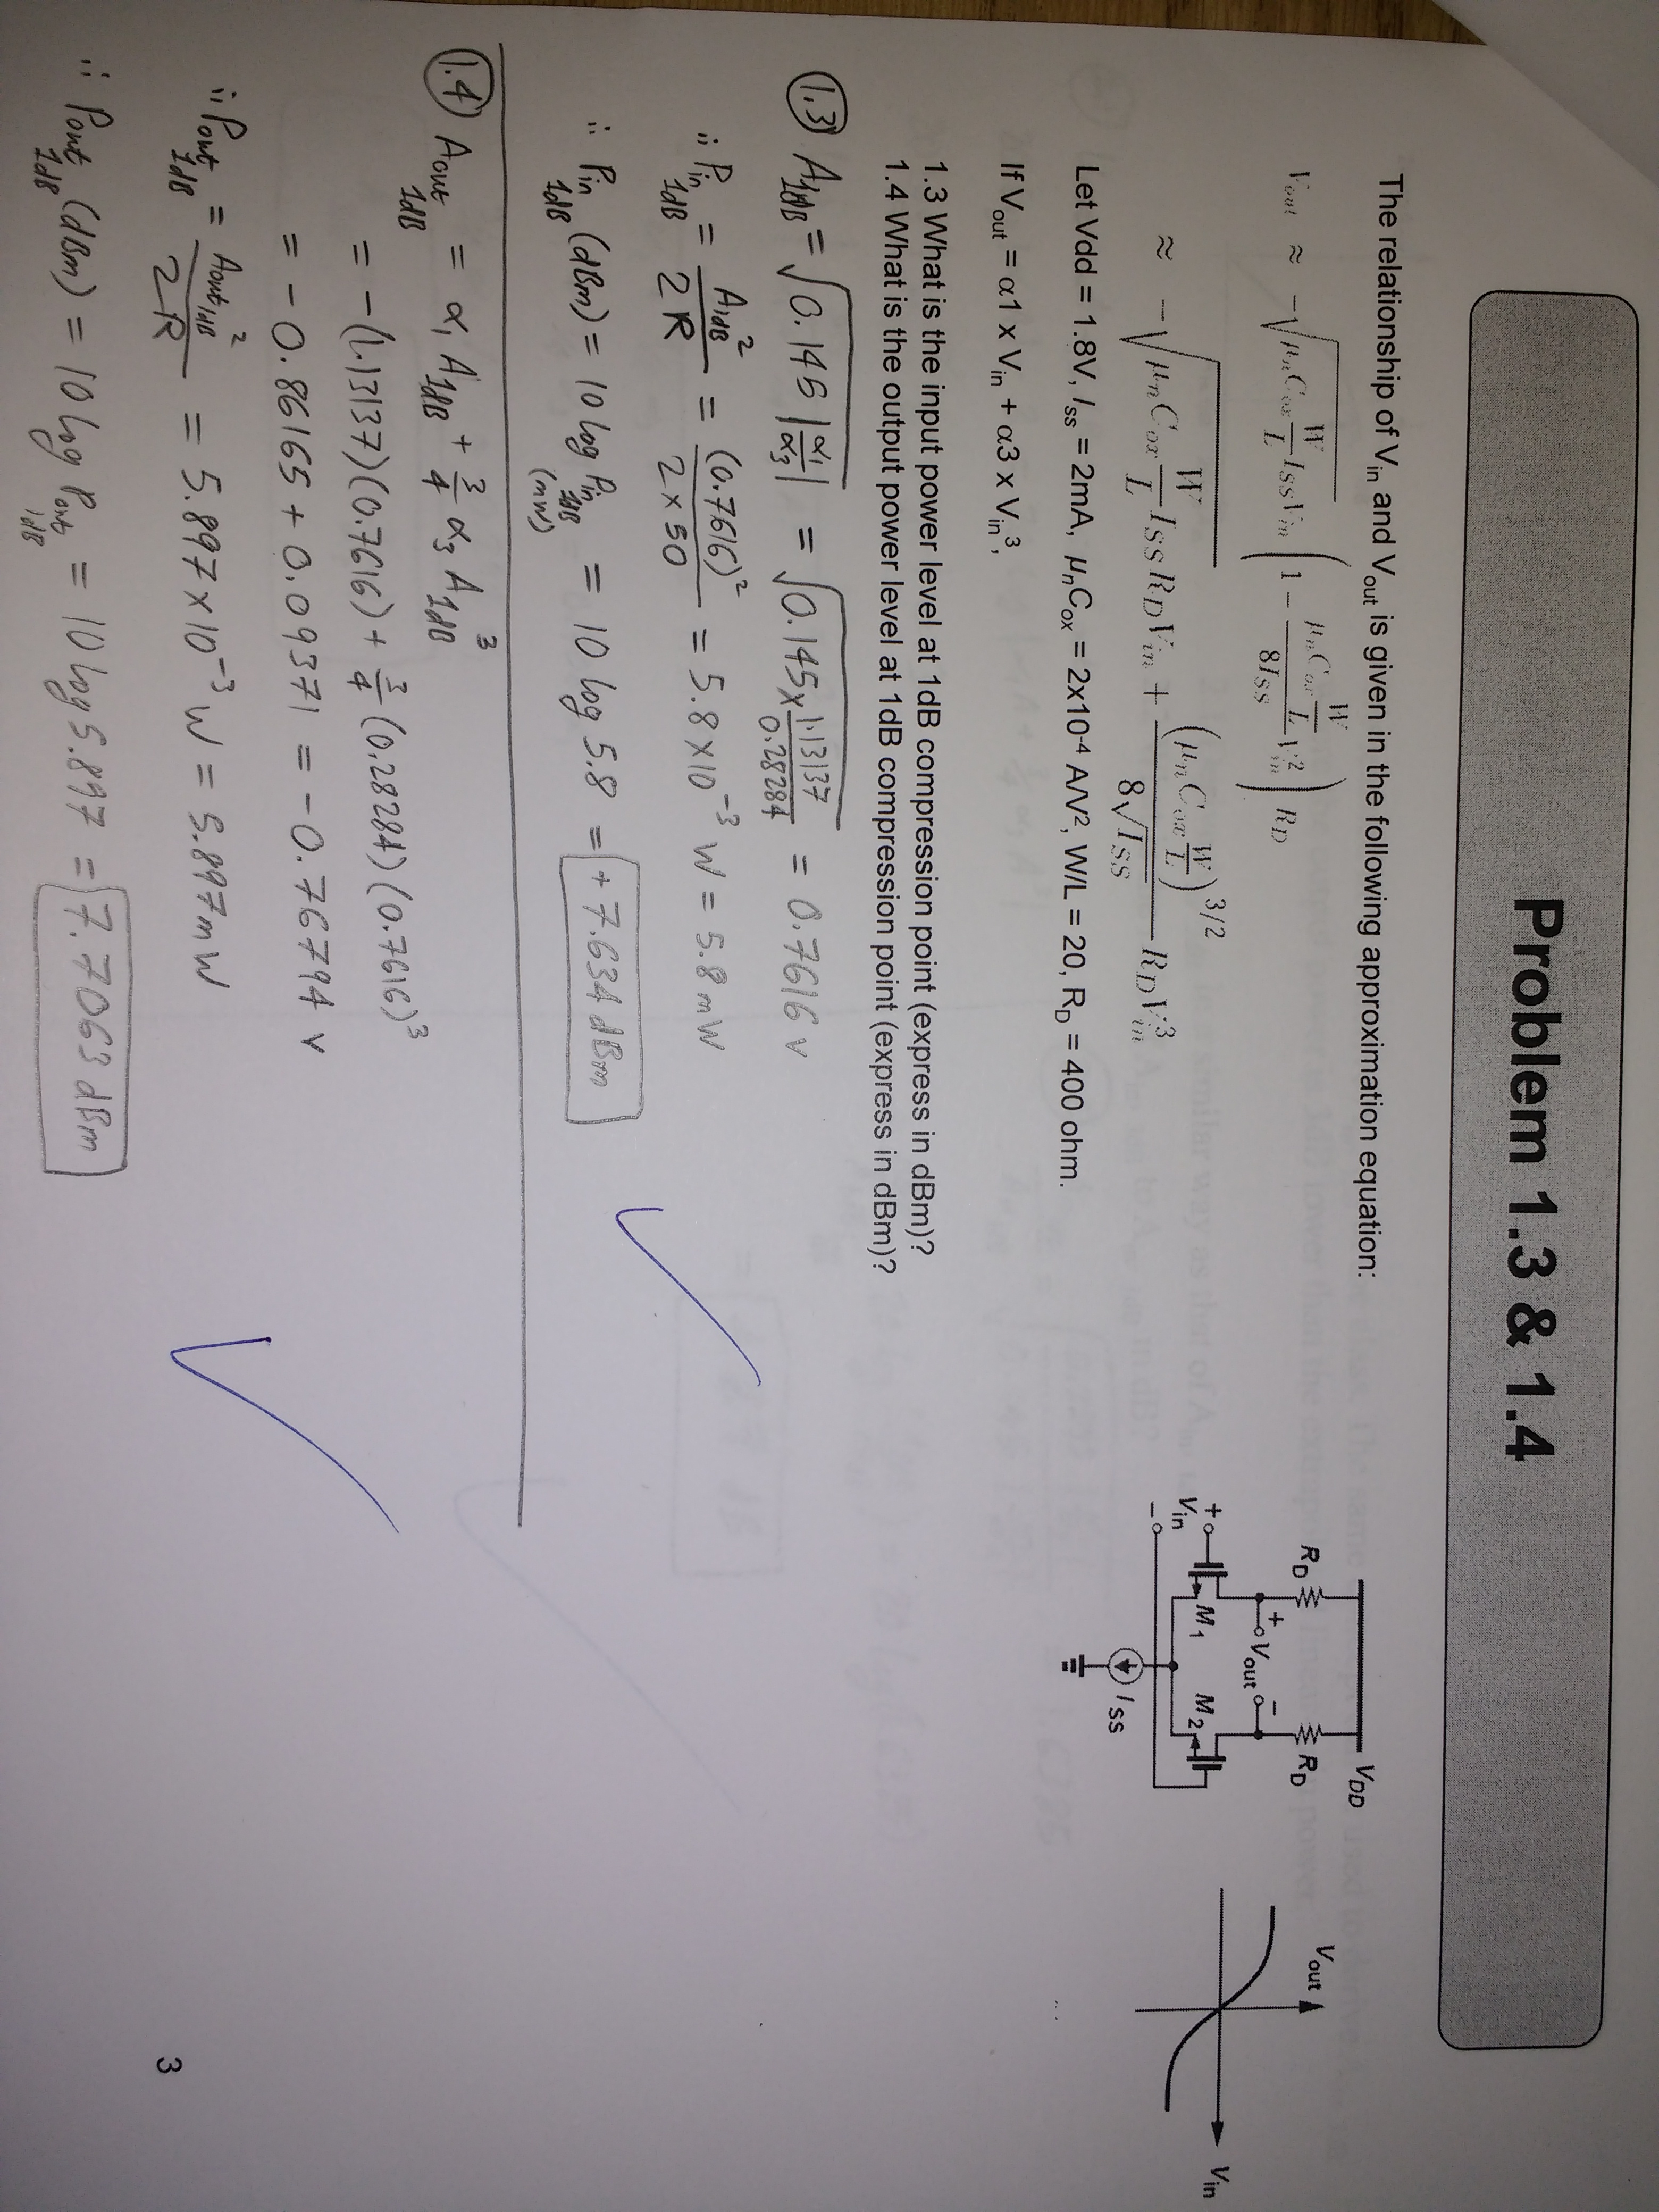 Problem 1.3 & 1.4
The relationship of Vin and Vout is given in the following approximation equation:
Vout ≈ −√(μnCox W/L ISS) Vin (1 − μnCox W/L Vin² / 8ISS) RD
≈ −√(μnCox W/L ISS) RD Vin + (μnCox W/L)^3/2 / 8√ISS RD Vin³
Let Vdd = 1.8V, Iss = 2mA, μnCox = 2x10-4 A/V², WL = 20, RD = 400 ohm.
If Vout = α1 x Vin + α3 x Vin³,
1.3 What is the input power level at 1dB compression point (express in dBm)?
1.4 What is the output power level at 1dB compression point (express in dBm)?
VDD
RD RD
+ Vout −
+ Vin −
M1 M2
ISS
Vout
Vin
1.3 A1dB = √(0.145 |α1/α3|) = √(0.145 x 1.13137/0.28284) = 0.7616 v
∴ Pin 1dB = A1dB² / 2R = (0.7616)² / 2 x 50 = 5.8 x 10⁻³ W = 5.8 mW
∴ Pin 1dB (dBm) = 10 log Pin 1dB (mW) = 10 log 5.8 = + 7.634 dBm
1.4 Aout 1dB = α1 A1dB + 3/4 α3 A1dB³
= −(1.13137)(0.7616) + 3/4 (0.28284)(0.7616)³
= − 0.86165 + 0.09371 = − 0.76794 v
∴ Pout 1dB = Aout1dB² / 2R = 5.897 x 10⁻³ W = 5.897 mW
∴ Pout 1dB (dBm) = 10 log Pout 1dB = 10 log 5.897 = 7.7063 dBm
3